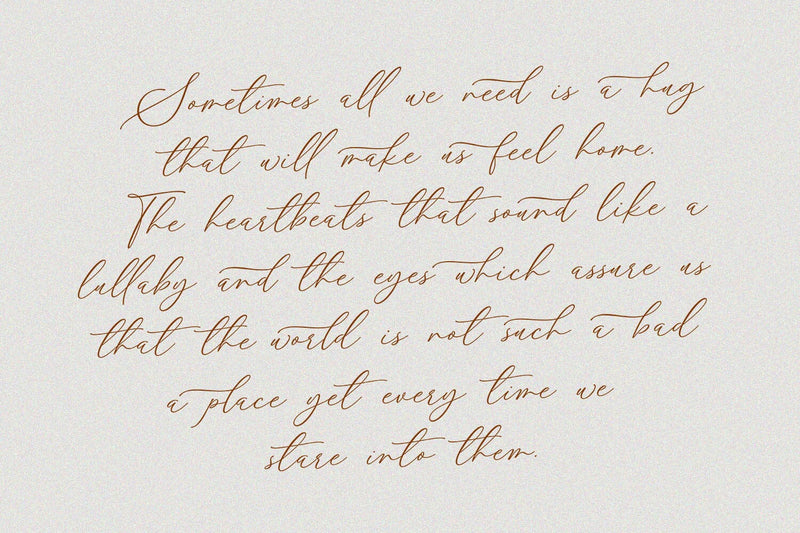 Sometimes all we need is a hug
that will make us feel home.
The heartbeats that sound like a
lullaby and the eyes which assure us
that the world is not such a bad
a place yet every time we
stare into them.